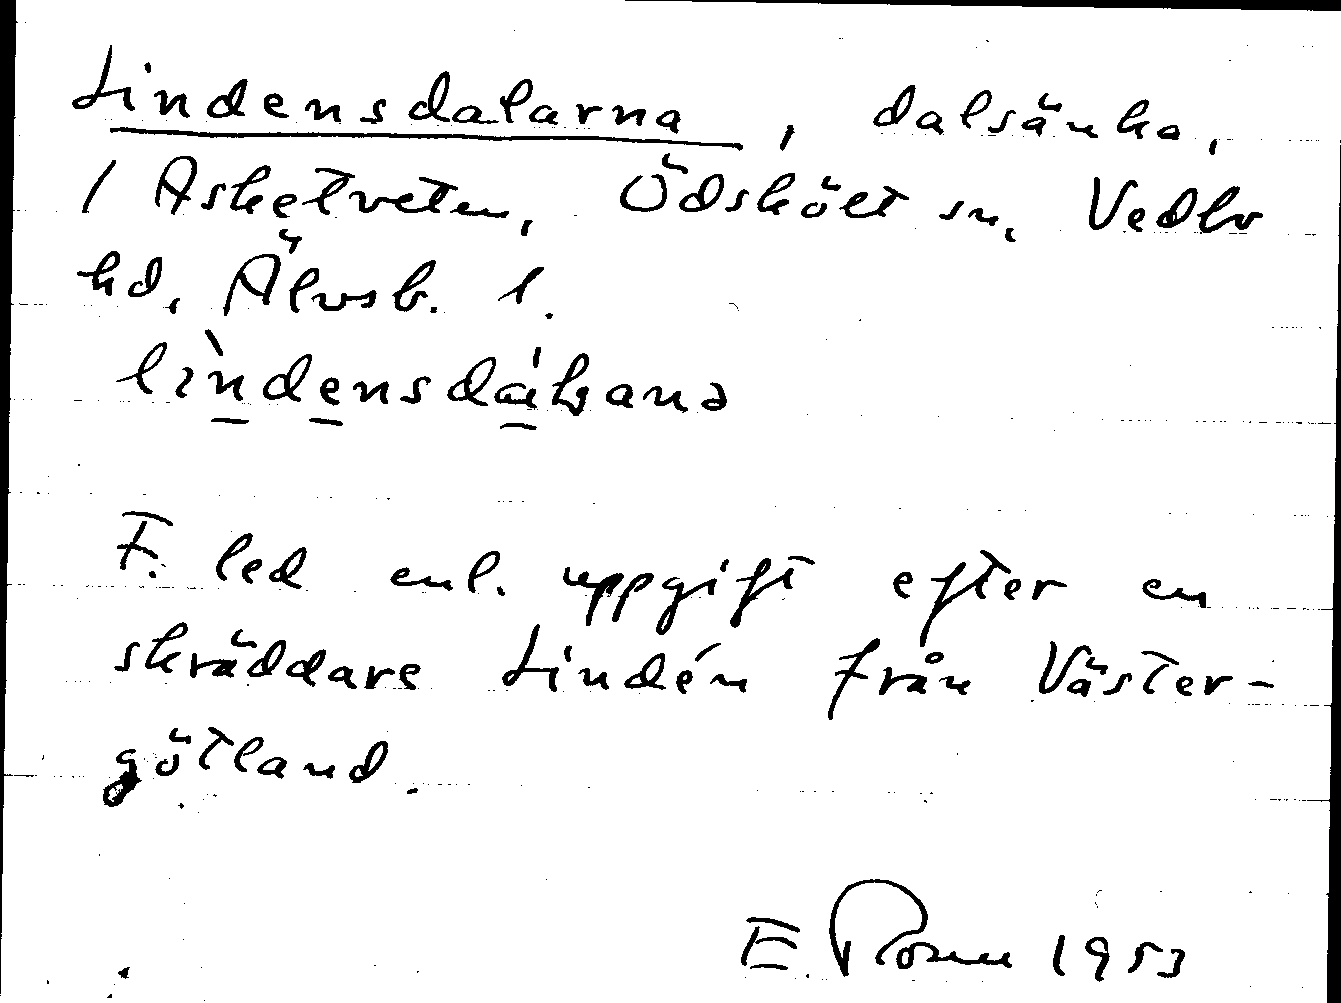 Lindensdalarna, dalsänka,
/ Asketveten, Ödskölt sn, Vedbo
hd, Älvsb. l.
lìndensdáḷbanə
F. led enl. uppgift efter en
skräddare Lindén från Väster-
götland.
E. 1953